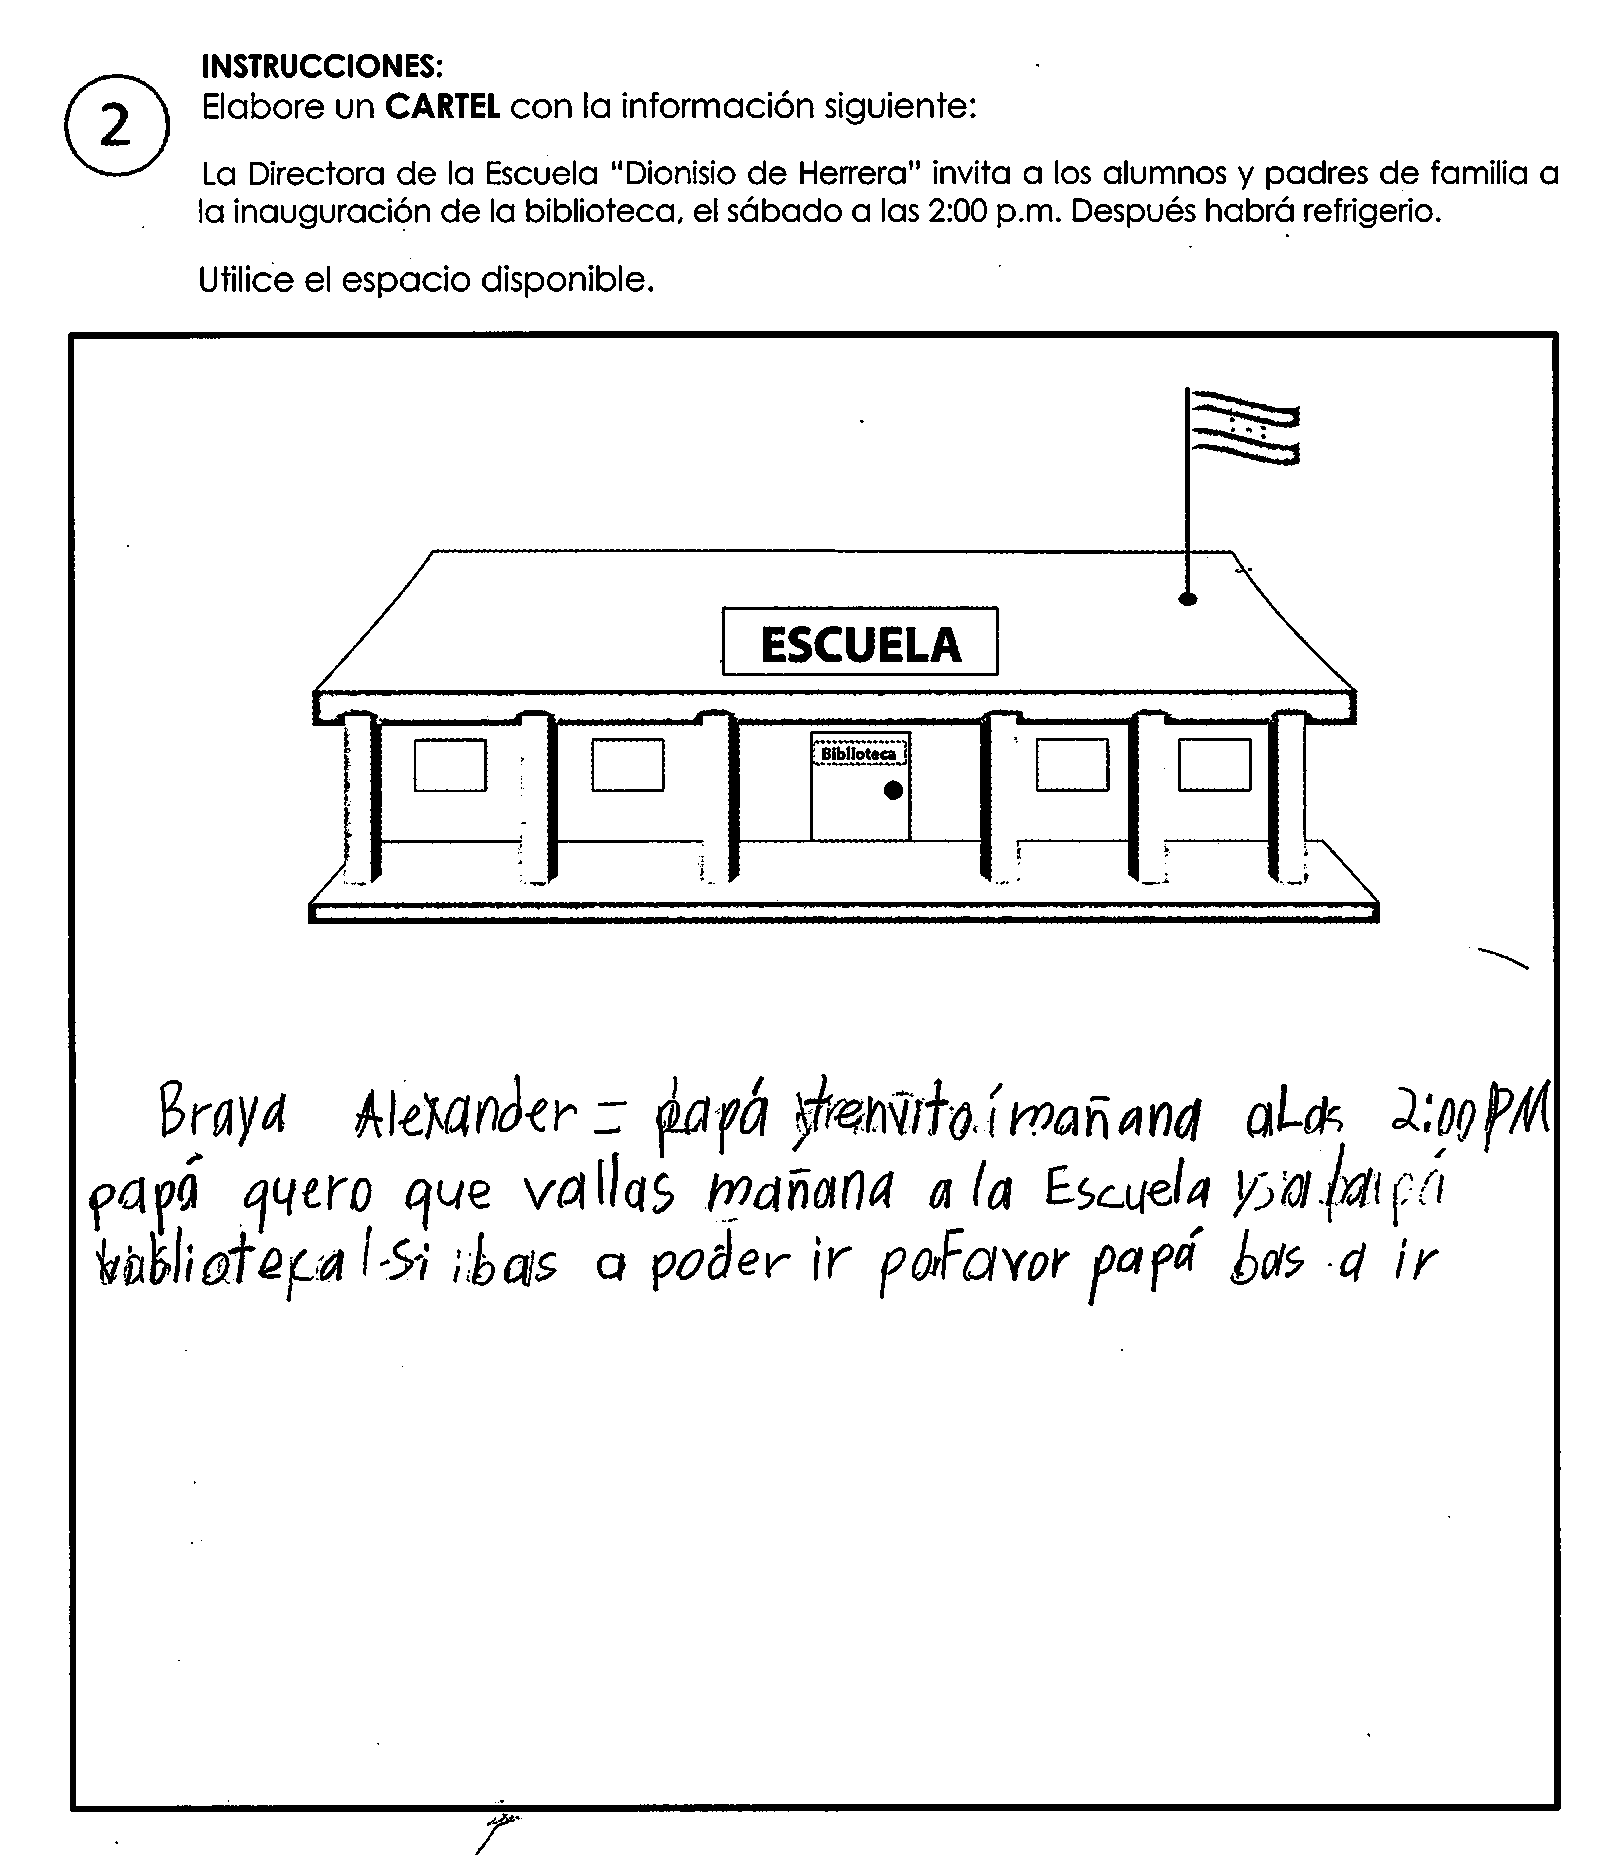 INSTRUCCIONES:
2
Elabore un CARTEL con la información siguiente:
La Directora de la Escuela "Dionisio de Herrera" invita a los alumnos y padres de familia a
la inauguración de la biblioteca, el sábado a las 2:00 p.m. Después habrá refrigerio.
Utilice el espacio disponible.
ESCUELA
Biblioteca
Braya Alexander = papá mañana aLas 2:00 PM
papá quero que vallas mañana a la Escuela
si ibas a poder ir porFavor papá bas a ir